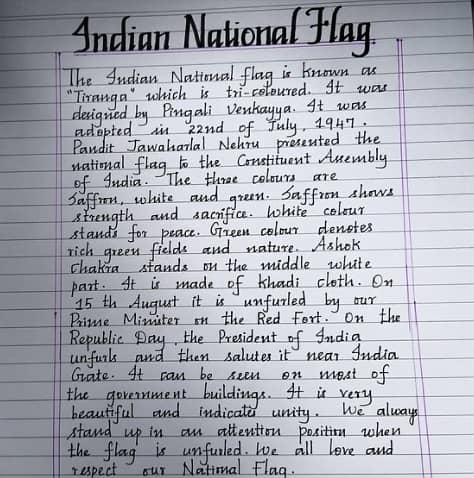 Indian National Flag.
The Indian National flag is known as
"Tiranga" which is tri-coloured. It was
designed by Pingali Venkayya. It was
adopted in 22nd of July, 1947.
Pandit Jawaharlal Nehru presented the
national flag to the Constituent Assembly
of India. The three colours are
Saffron, white and green. Saffron shows
strength and sacrifice. White colour
stands for peace. Green colour denotes
rich green fields and nature. Ashok
Chakra stands on the middle white
part. It is made of khadi cloth. On
15 th August it is unfurled by our
Prime Minister on the Red Fort. On the
Republic Day, the President of India
unfurls and then salutes it near India
Gate. It can be seen on most of
the government buildings. It is very
beautiful and indicates unity. We always
stand up in an attention position when
the flag is unfurled. We all love and
respect our National Flag.